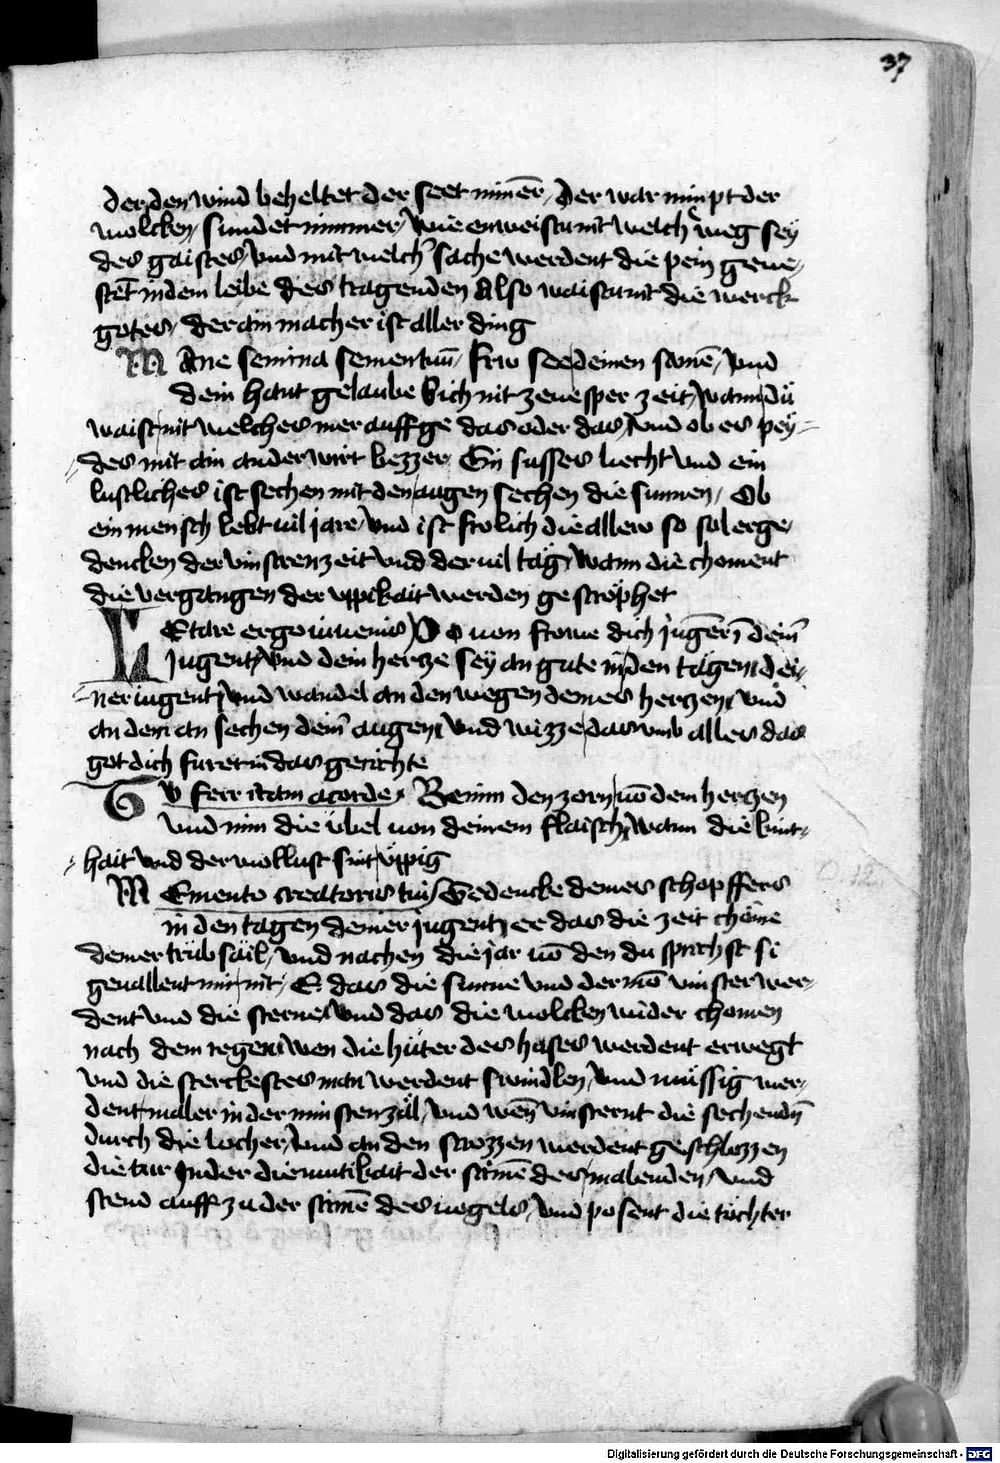 37
der den wind beheltet der seet nimer̄ / Der war nimpt der
wolcken / snndet nimmer / Wie enweistu nit welch weg sey
des gaistes / Vnd mit welch̄ sache werdent die pein geue /
stēt in dem leibe des tragenden Also waistu nit die werck
gotes / der ain macher ist aller ding
Mane semina sementuū / Frw see deinen samē / Vnd
dein hant gelaube sich nit ze uesper zeit / wann dü
waist nit welches mer auff ge das oder das / Vnd ob es pey=
=des mit ain ander wirt bezzer Ein susses liecht Vnd ein
lustliches ist sechen mit den augen sechen die sunnen / Ob
ein mensch lebt uil jare / Vnd ist frolich die allew so sol er ge /
dencken der vinstren zeit Vnd der uil täg / wann die choment
die vergangen der vppikait werden geströphet
Letare ergo iuuenis / Do uon frowe dich jugēr ī deim̄
jugent / Vnd dein hertze sey an gute in den tägen dei /
=ner iugent / Vnd wandel an den wegen deines hertzen Vnd
an dem an sechen deim̄ augen / Vnd wizze das umb alles das
got dich furet in das gerichte
Gv ferr iram acorde / Benim den zorn uō dem hertzen
Vnd nim die übel uon deinem flaisch / Wann die kint=
=hait Vnd der wollust sint üppig
Memento creatoris tui / Gedencke deines schopffers
in den tagen deiner jugent / ee das die zeit chöme
deiner trübsäil / Vnd nachen die jar uō den du sprichst si
geuallent mir nit / E das die sunne Vnd der mō vinster wer /
dent Vnd die sterne / Vnd das die wolcken wider chomen
nach dem regen / Wen die hüter des hases werdent erwegt
Vnd die sterckestes man werdent swindlen / Vnd müssig wer /
dent maler in der minsten zäl / Vnd wen̄ vinsternt die sechendn̄
durch die locher / Vnd an den strozzen werdent geschlozzen
die tur In der diemutikait der stimē des malenden / Vnd
stend auff zu der stimē des uogels / Vnd posent die tochter
Digitalisierung gefördert durch die Deutsche Forschungsgemeinschaft - DFG